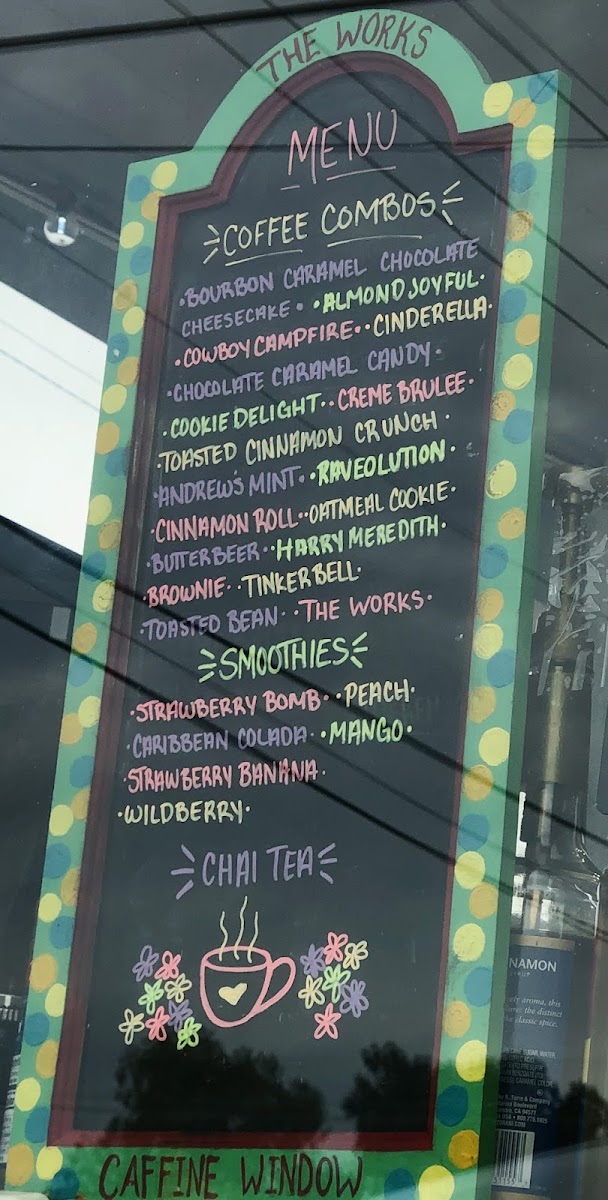 THE WORKS
MENU
COFFEE COMBOS
·BOURBON CARAMEL CHOCOLATE
CHEESECAKE· ·ALMOND JOYFUL·
·COWBOY CAMPFIRE· ·CINDERELLA·
·CHOCOLATE CARAMEL CANDY·
·COOKIE DELIGHT· ·CREME BRULEE·
·TOASTED CINNAMON CRUNCH·
·ANDREW'S MINT· ·RAVEOLUTION·
·CINNAMON ROLL· ·OATMEAL COOKIE·
·BUTTERBEER· ·HARRY MEREDITH·
·BROWNIE· ·TINKERBELL·
·TOASTED BEAN· ·THE WORKS·
SMOOTHIES
·STRAWBERRY BOMB· ·PEACH·
·CARIBBEAN COLADA· ·MANGO·
·STRAWBERRY BANANA·
·WILDBERRY·
CHAI TEA
NAMON
aroma, this
the distinct
classic spice.
CAFFINE WINDOW